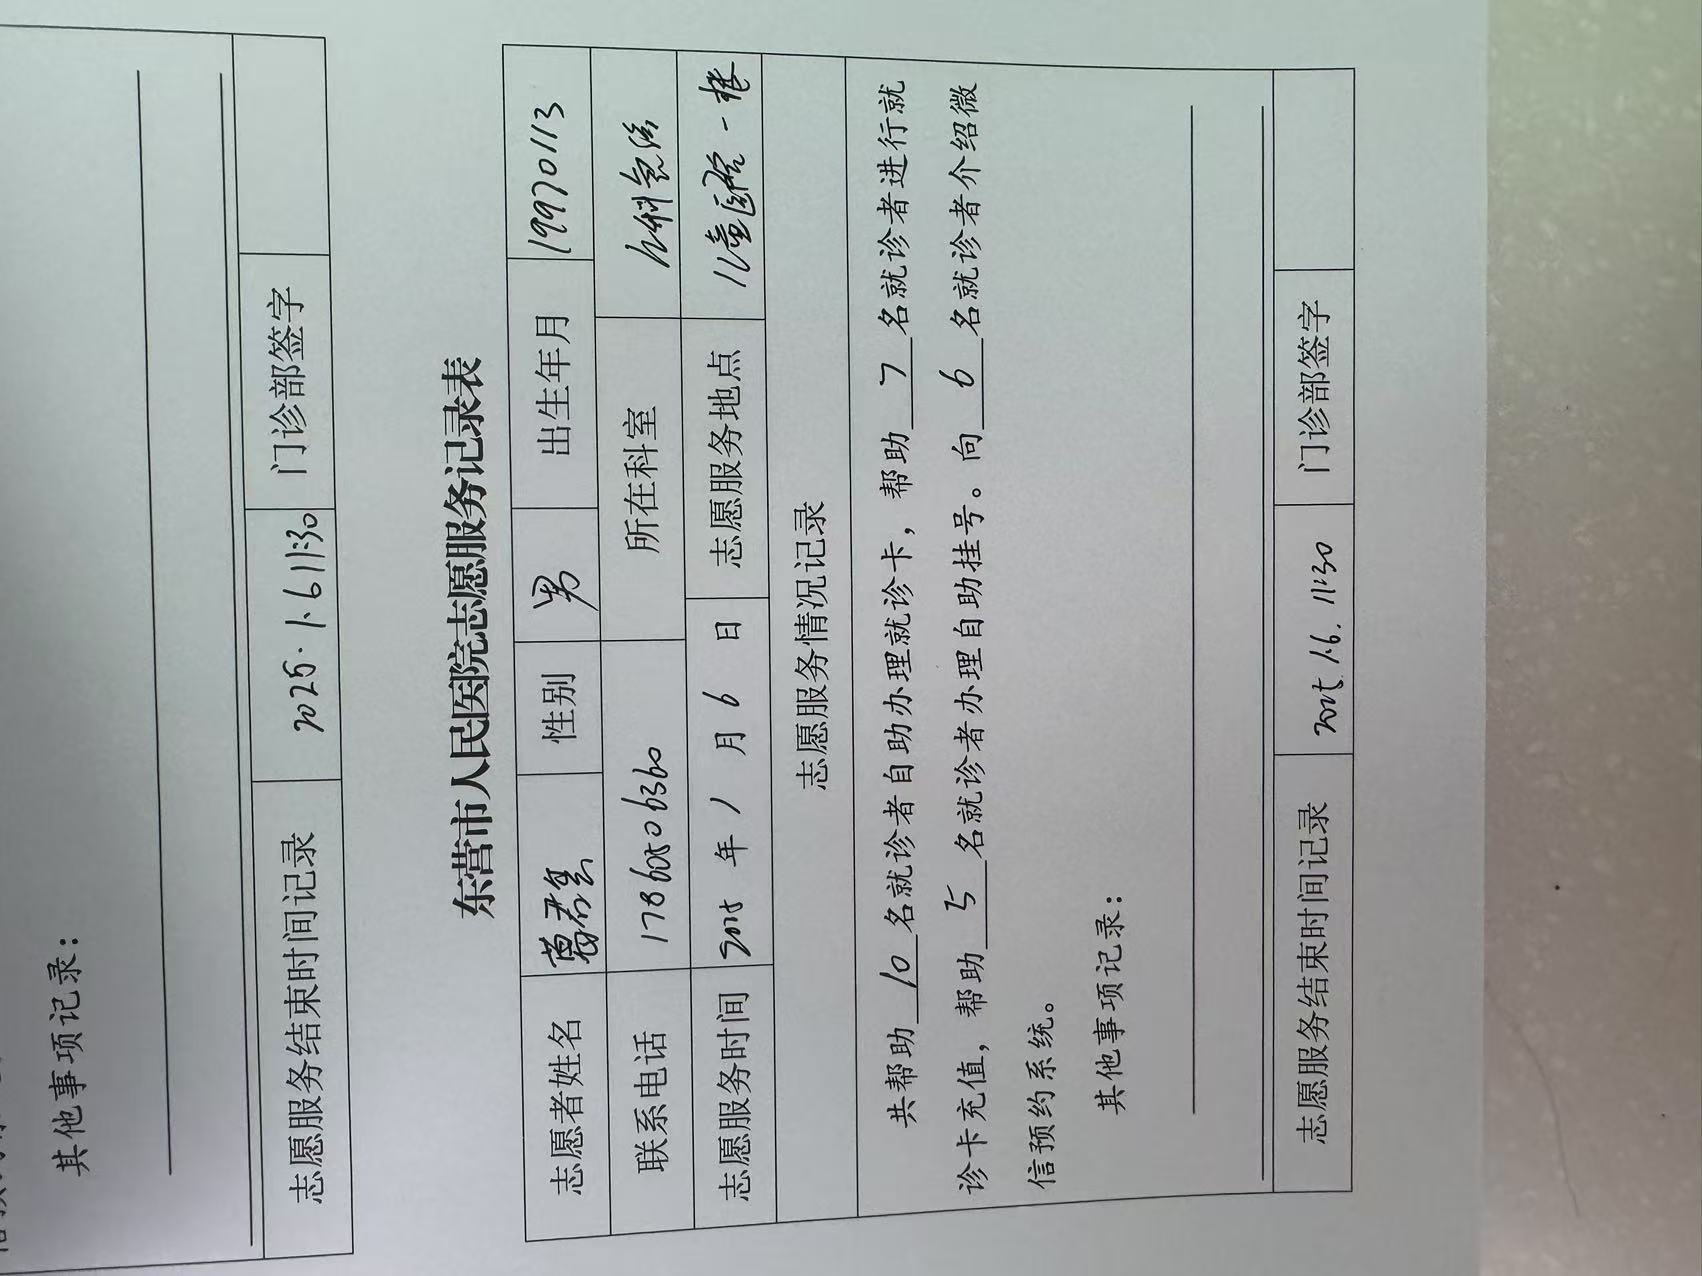 其他事项记录：
志愿服务结束时间记录 2025.1.6 11:30 门诊部签字
东营市人民医院志愿服务记录表
志愿者姓名 葛君玺 性别 男 出生年月 19970113
联系电话 17866506360 所在科室 儿科急诊
志愿服务时间 2025年1月6日 志愿服务地点 儿童医院一楼
志愿服务情况记录
共帮助10名就诊者自助办理就诊卡，帮助7名就诊者进行就
诊卡充值，帮助5名就诊者办理自助挂号。向6名就诊者介绍微
信预约系统。
其他事项记录：
志愿服务结束时间记录 2025.1.6. 11:30 门诊部签字